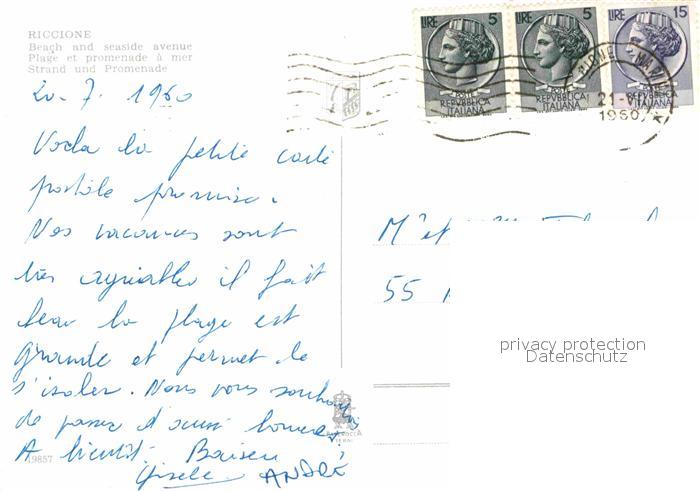 RICCIONE
Beach and seaside avenue
Plage et promenade à mer
Strand und Promenade
LIRE 5
POSTE
REPVBBLICA
ITALIANA
LIRE 5
POSTE
REPVBBLICA
ITALIANA
LIRE 15
REPVBBLICA
ITALIANA
21-VII
1960
20. 7. 1960
Voila la petite carte
postale promise.
Nos vacances sont
très agréables il fait
beau la plage est
grande et permet de
s'isoler. Nous vous souhaitons
de passer d'aussi bonnes.
A bientôt. Baisers
Gisele ANDRÉ
19857
M et
55
privacy protection
Datenschutz